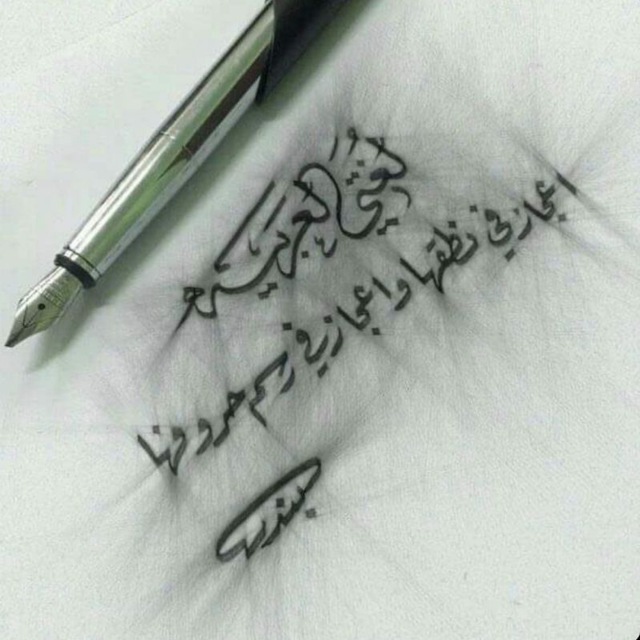 لغتي العربية
اعجاز في نطقها واعجاز في رسم حروفها